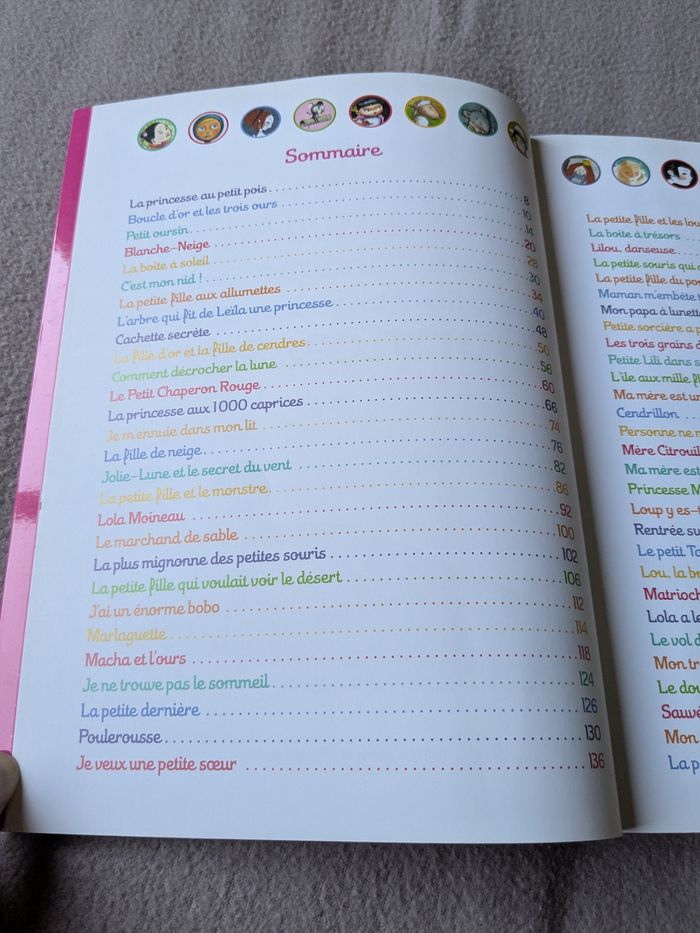 Sommaire
La princesse au petit pois 8
Boucle d'or et les trois ours 10
Petit oursin 14
Blanche-Neige 20
La boîte à soleil 28
C'est mon nid ! 30
La petite fille aux allumettes 34
L'arbre qui fit de Leïla une princesse 40
Cachette secrète 48
La fille d'or et la fille de cendres 50
Comment décrocher la lune 56
Le Petit Chaperon Rouge 60
La princesse aux 1000 caprices 66
Je m'ennuie dans mon lit 74
La fille de neige 76
Jolie-Lune et le secret du vent 82
La petite fille et le monstre 86
Lola Moineau 92
Le marchand de sable 100
La plus mignonne des petites souris 102
La petite fille qui voulait voir le désert 106
J'ai un énorme bobo 112
Marlaguette 114
Macha et l'ours 118
Je ne trouve pas le sommeil 124
La petite dernière 126
Poulerousse 130
Je veux une petite sœur 136
La petite fille et les
La boîte à trésors
Lilou, danseuse
La petite souris qui
La petite fille du
Maman m'embête
Mon papa à
Petite sorcière a
Les trois grains
Petite Lili dans
L'île aux mille
Ma mère est
Cendrillon
Personne ne
Mère
Ma mère est
Princesse
Loup y
Rentrée
Le petit
Lou, la
Lola a
Le vol
Mon
Le
Mon
La